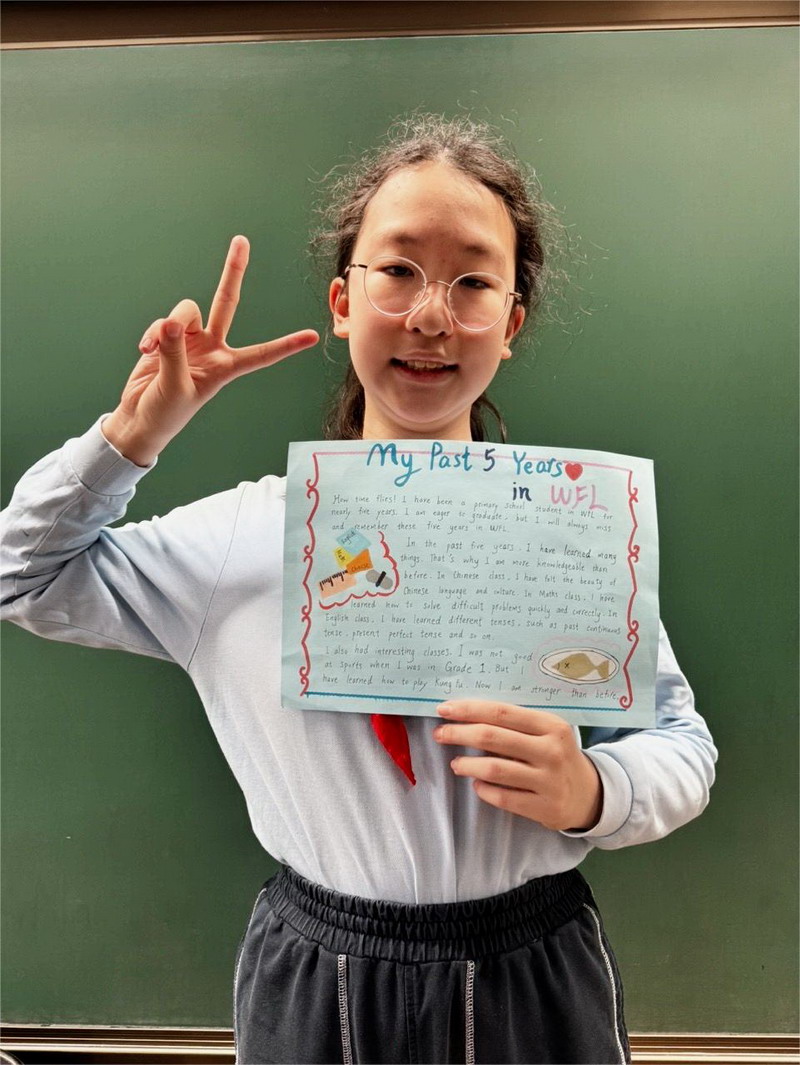 My Past 5 Years
in WFL
How time flies! I have been a primary school student in WFL for
nearly five years. I am eager to graduate, but I will always miss
and remember these five years in WFL.
In the past five years, I have learned many
things. That's why I am more knowledgeable than
before. In Chinese class, I have felt the beauty of
Chinese language and culture. In Maths class, I have
learned how to solve difficult problems quickly and correctly. In
English class, I have learned different tenses, such as past continuous
tense, present perfect tense and so on.
I also had interesting classes. I was not good
at sports when I was in Grade 1. But I
have learned how to play Kung fu. Now I am stronger than before.
English
Math